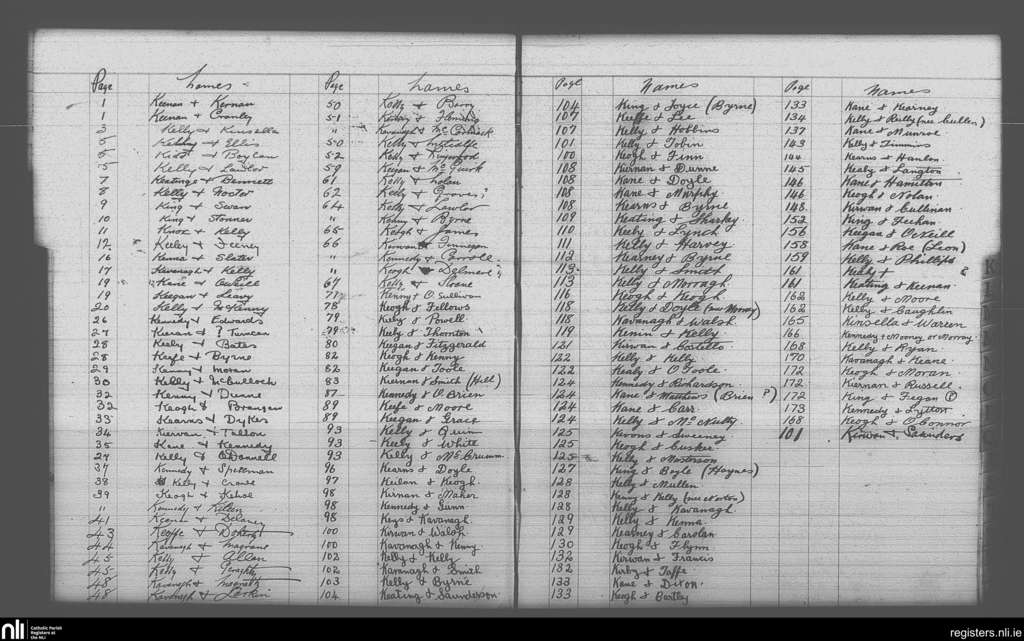 Page Names
1 Keenan & Kernan
1 Keenan & Cranly
3 Kelly & Kinsella
5 Kelly & Ellis
5 & Boylan
5 Kelly & Lawlor
7 Keatinge & Bennett
8 Kelly & Foster
9 King & Swan
10 King & Stoner
11 Knox & Kelly
12 Keeley & Feeney
16 Kenna & Slater
17 Kavanagh & Kelly
19 Kane & O'Neill
19 Keegan & Leavy
20 Kelly & McKenny
26 Kennedy & Edwards
27 Kieran & ?
28 Kealy & Bates
28 Keefe & Byrne
29 Kenny & Moran
30 Kelly & McCulloch
32 Kenny & Dunne
32 Keogh & Branagan
33 Kearns & Dykes
34 Kierwan & Tallon
35 Kane & Kennedy
27 Kelly & O'Donnell
37 Kennedy & Spellman
38 Kelly & Crowe
39 Keogh & Kehoe
" Kennedy &
41 & Delaney
43 Keeffe & Doherty
44 Kavanagh &
45 Kelly & Allan
45 Kelly & Geraghty
48 Kavanagh &
48 Kavanagh & Larkin
Page Names
50 Kelly & Barry
51 & Fleming
" Kavanagh & McCormack
50 Kelly & Metcalfe
52 Kelly &
59 Keegan & McGuirk
61 Kelly & Nolan
62 Kelly & ?
64 Kelly & Lawlor
" Kenny & Byrne
65 Keogh & James
66 Kirwan & Finnegan
" Kennedy & Carroll
" Keogh &
67 Kelly & Sloane
77 Kenny & O'Sullivan
78 Keogh & Fellows
79 Kiely & Powell
79 Kiely & Thornton
80 Keegan & Fitzgerald
82 Keogh & Kenny
82 Keegan & Toole
83 Kiernan & Smith (Hill)
87 Kennedy & O'Brien
89 Keefe & Moore
89 Keegan & Grace
93 Kelly & Quinn
93 Keely & White
93 Kelly & McCrumm
96 Kearns & Doyle
97 & Keogh
98 Kiernan & Maher
98 Kennedy & Gunn
98 Keys & Kavanagh
100 Kirwan & Walsh
100 Kavanagh & Kenny
102 Kelly & Kelly
102 Kavanagh & Smith
103 Kelly & Byrne
104 Keating & Saunderson
Page Names
104 King & Joyce (Byrne)
107 Keeffe & Lee
107 Kelly & Hobbins
101 Kelly & Tobin
100 Keogh & Finn
108 Kiernan & Dunne
108 Kane & Doyle
108 Kane & Murphy
108 Kearns & Byrne
109 Keating & Sharkey
110 Keely & Lynch
111 Kelly & Harvey
112 Kearney & Byrne
113 Kelly & Smith
113 Kelly & Morragh
116 Keogh & Keogh
118 Kelly & Doyle (nee Murray)
118 Kavanagh & Walsh
119 & Kelly
121 Kirwan & Costello
122 Kelly & Kelly
122 Kealy & O'Toole
124 Kennedy & Richardson
124 Kane & Matthews (Brien ?)
124 Kane & Carr
124 Kelly & McNulty
125 & Sweeney
125 Keogh & Cuskee
125 Kelly & Masterson
127 King & Boyle (Haynes)
128 Kelly & Mullen
128 King & Kelly (nee Norton)
128 Kelly & Kavanagh
129 Kelly & Kenna
129 Kearney & Carolan
130 Keogh & Flynn
132 Kirwan & Francis
132 Kirby & Taffe
133 Kane & Dixon
133 Keogh & Bartley
Page Names
133 Kane & Kearney
134 Kelly & Reilly (nee Cullen)
137 Kane & Munroe
143 Kelly & Timmins
144 Kearns & Hanlon
145 Kealy & Langton
146 Kane & Hamilton
146 Keogh & Nolan
148 Kirwan & Cullinan
152 King & Feehan
156 Keegan & O'Neill
158 Kane & Roe (Leon)
159 Kelly & Phillips
161 Kealy & ?
161 Keating & Keenan
162 Kelly & Moore
162 Kelly & Caughlin
165 Kinsella & Warren
166 Kennedy & Mooney or Morroy
168 Kelly & Ryan
170 Kavanagh & Keane
172 Keogh & Moran
172 Kiernan & Russell
172 King & Fegan (?)
173 Kennedy & Lytton
168 Keogh & O'Connor
101 Kirwan & Saunders
nli
Catholic Parish
Registers at
the NLI
registers.nli.ie